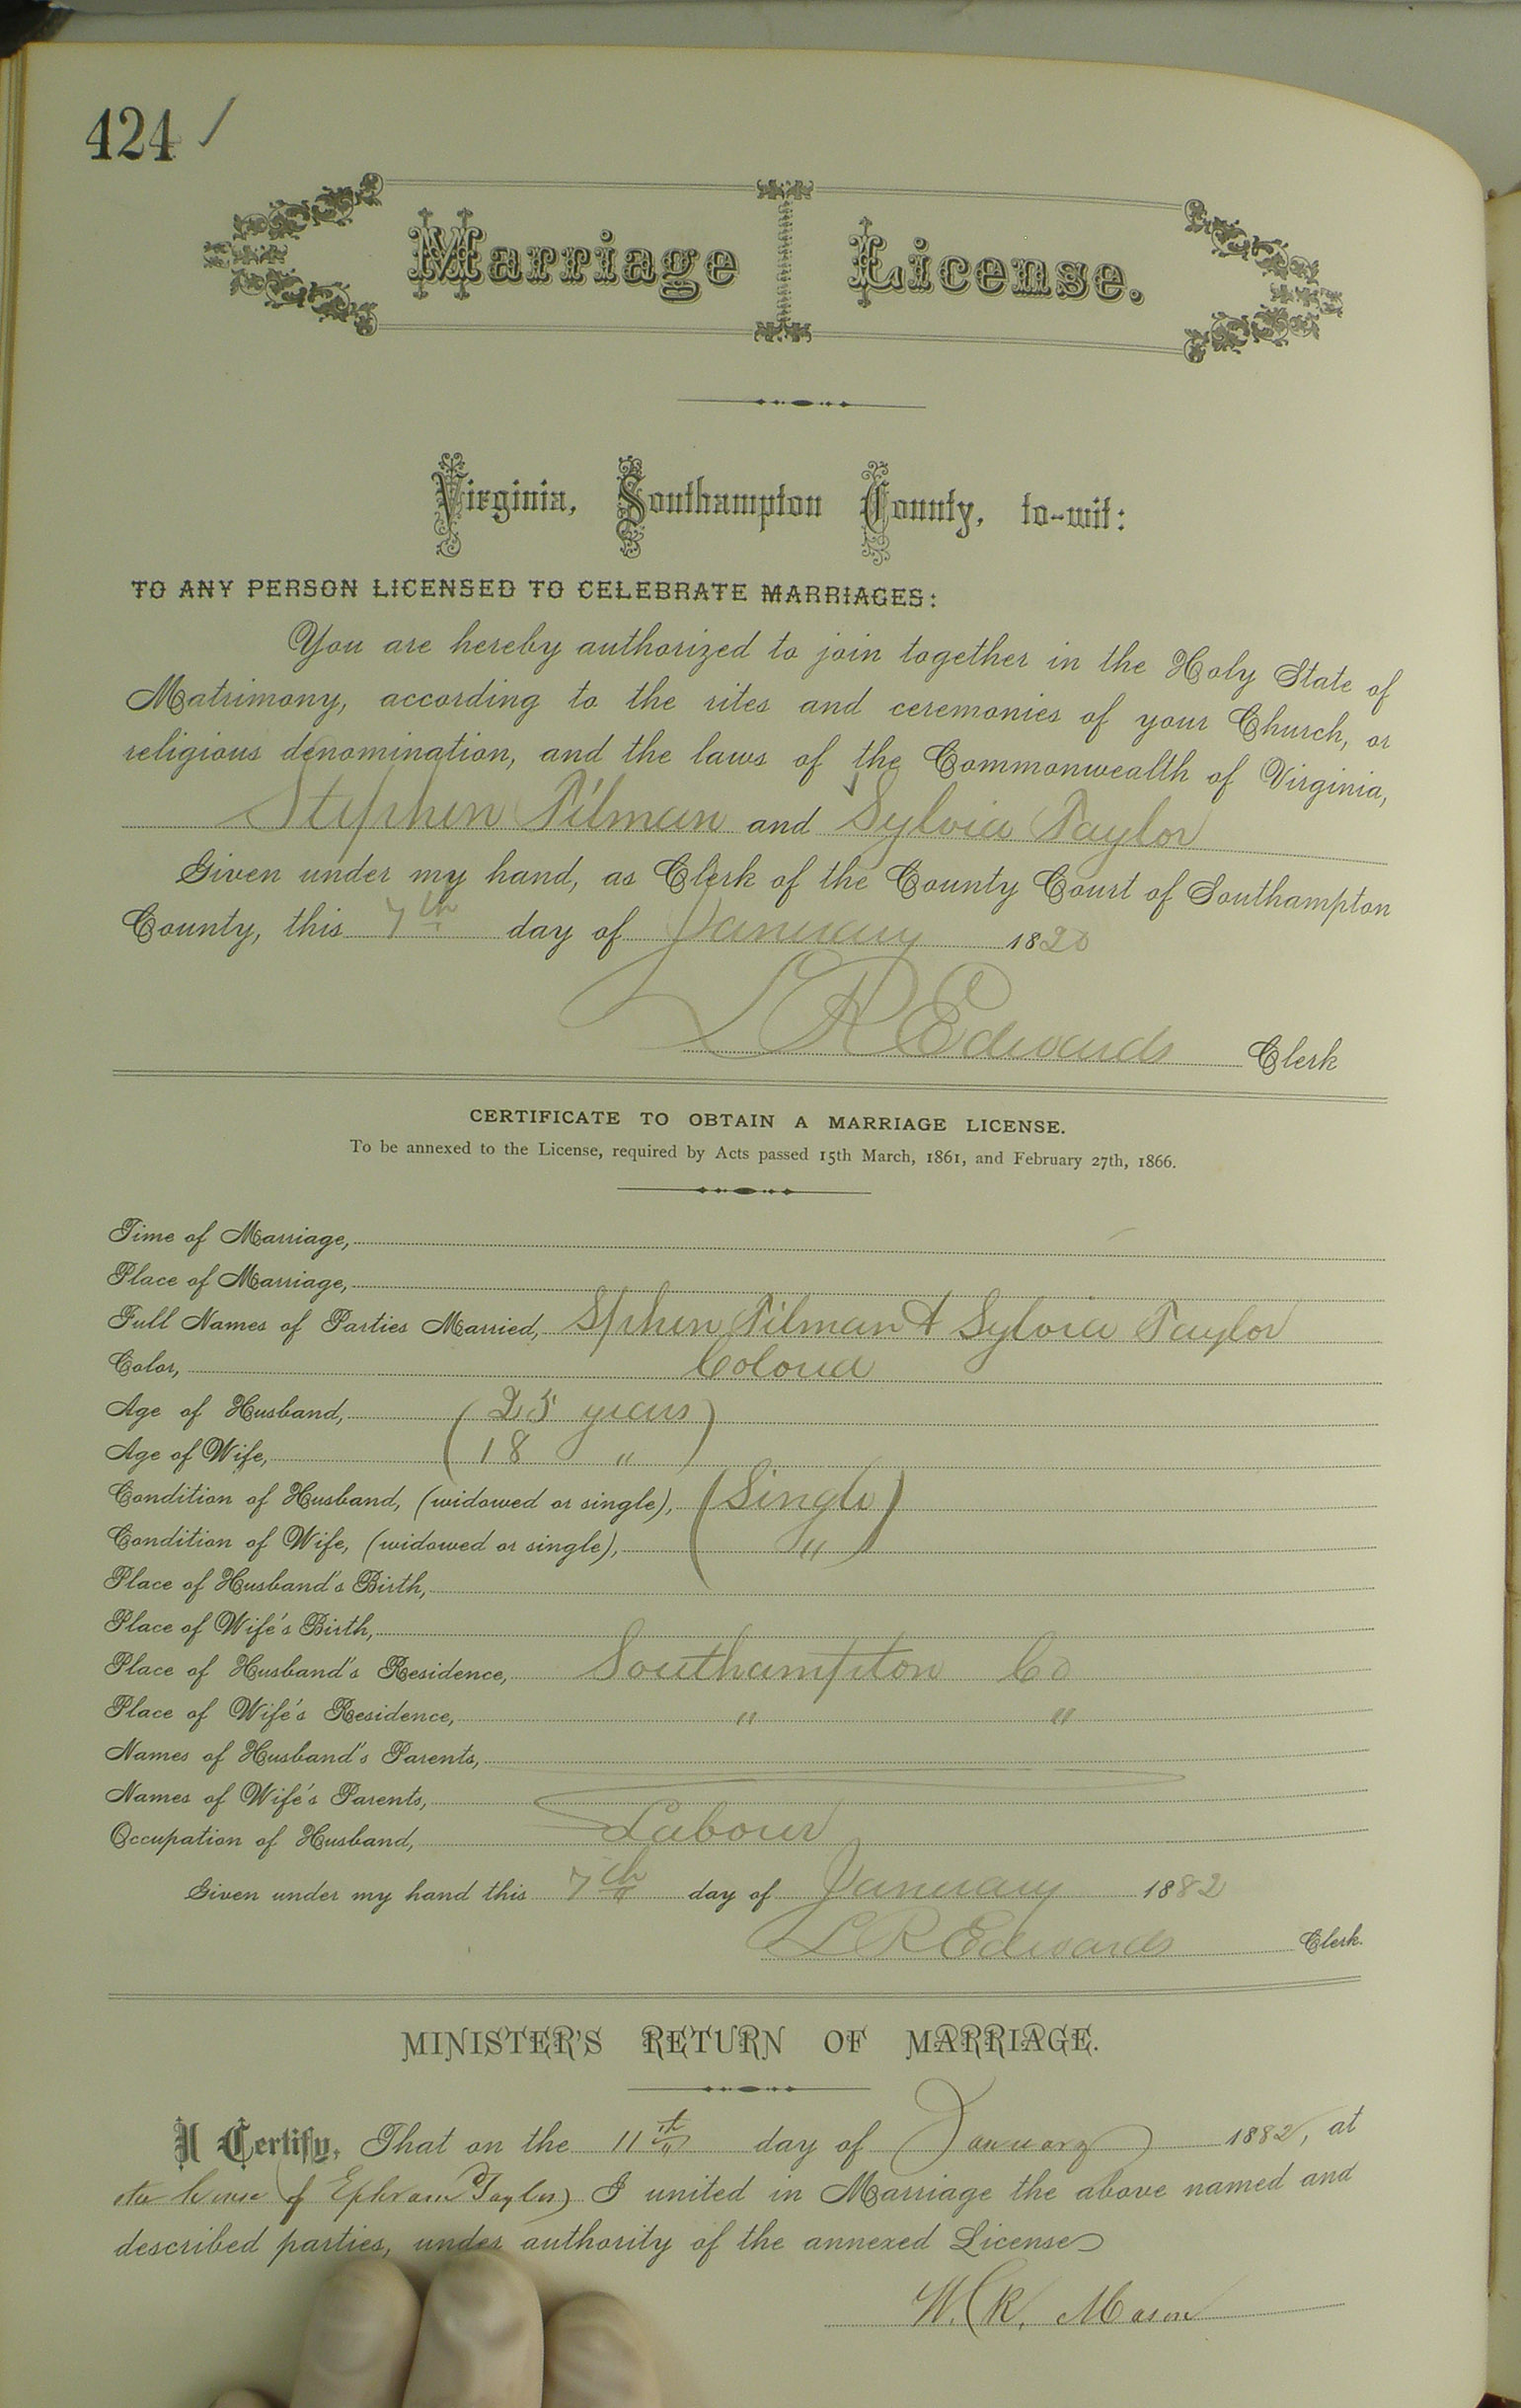 424
Marriage License.
Virginia, Southampton County, to-wit:
TO ANY PERSON LICENSED TO CELEBRATE MARRIAGES:
You are hereby authorized to join together in the Holy State of
Matrimony, according to the rites and ceremonies of your Church, or
religious denomination, and the laws of the Commonwealth of Virginia,
Stephen Pilman and Sylvia Taylor
Given under my hand, as Clerk of the County Court of Southampton
County, this 7th day of January 1820
L R Edwards Clerk
CERTIFICATE TO OBTAIN A MARRIAGE LICENSE.
To be annexed to the License, required by Acts passed 15th March, 1861, and February 27th, 1866.
Time of Marriage,
Place of Marriage,
Full Names of Parties Married, Sphen Pilman & Sylvia Taylor
Color, Colored
Age of Husband, (25 years)
Age of Wife, (18 ")
Condition of Husband, (widowed or single), (Single)
Condition of Wife, (widowed or single), ( " )
Place of Husband's Birth,
Place of Wife's Birth,
Place of Husband's Residence, Southampton Co
Place of Wife's Residence, " "
Names of Husband's Parents,
Names of Wife's Parents,
Occupation of Husband, Labour
Given under my hand this 7th day of January 1882
L R Edwards Clerk.
MINISTER'S RETURN OF MARRIAGE.
I Certify, That on the 11th day of January 1882, at
the house of Ephram Taylor I united in Marriage the above named and
described parties, under authority of the annexed License
W. R. Mason